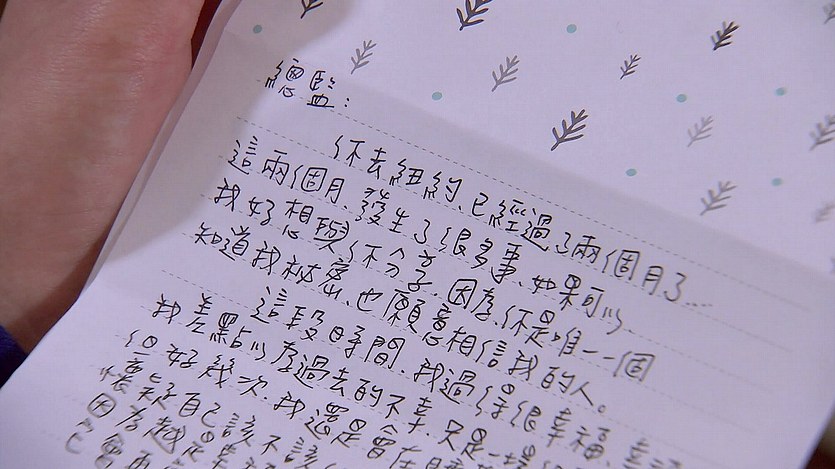 總監：
你去紐約、已經過了兩個月了...
這兩個月、發生了很多事、如果可以、
我好想與你分享、因為你是唯一一個
知道我秘密、也願意相信我的人。
這段時間、我過得很幸福、幸
我差點以為過去的不幸、只是一場
但好幾次、我還是會在
懷疑自己該不該
因為越是